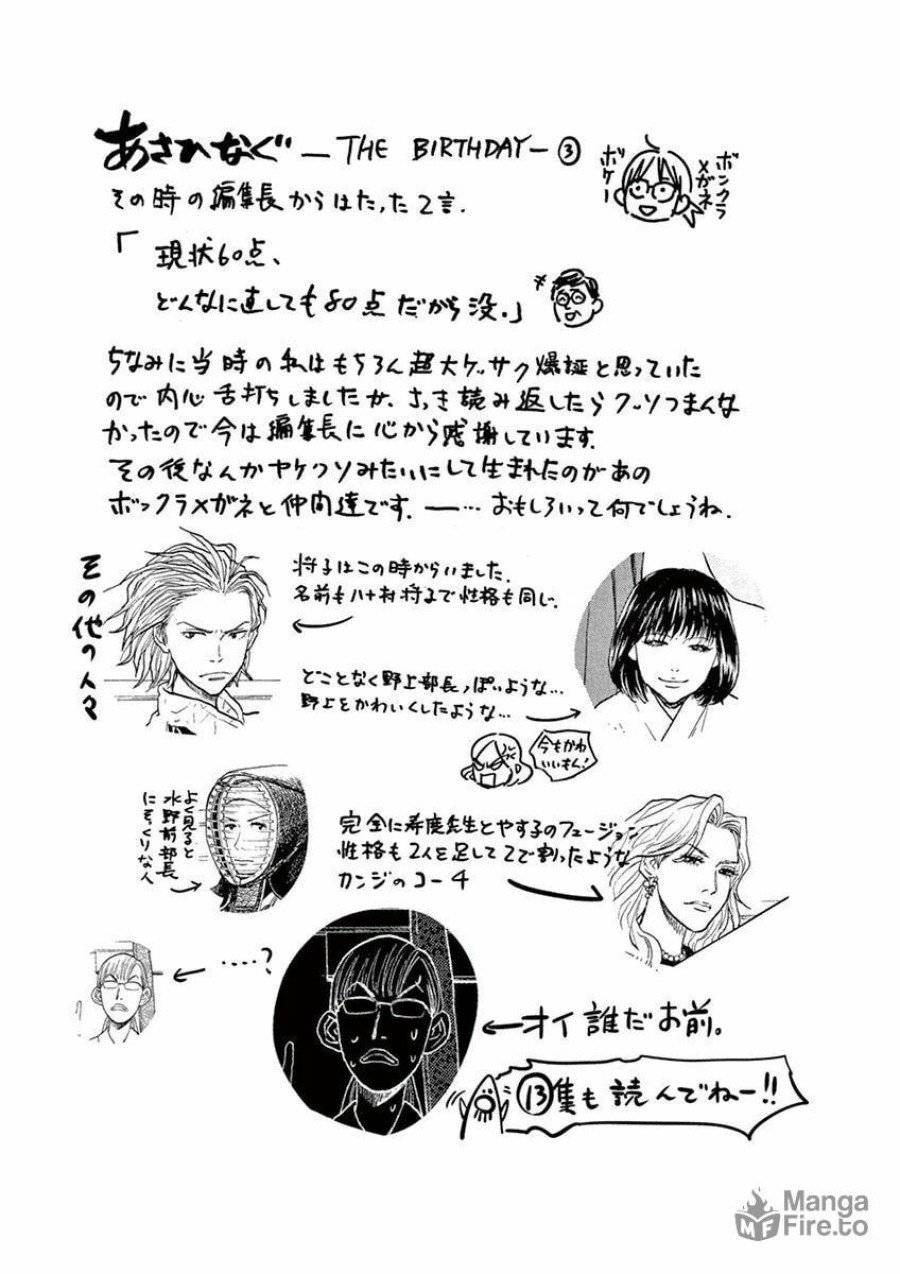 あさひなぐ ―THE BIRTHDAY― ③
ボンクラ
メガネ
ボケー
その時の編集長からはたった2言.
「現状60点、
どんなに直しても80点だから没.」
ちなみに当時の私はもちろん超大ケッサク爆誕と思っていた
ので内心舌打ちしましたが、さっき読み返したらクッソつまんな
かったので今は編集長に心から感謝しています.
その後なんかヤケクソみたいにして生まれたのがあの
ボンクラメガネと仲間達です. ―… おもしろいって何でしょうね.
その他の人々
将子はこの時からいました.
名前も八十村将子で性格も同じ.
どことなく野上部長っぽいような…
野上をかわいくしたような…
今もかわ
いいもん!
よく見ると
水野前部長
にそくりな人
完全に寿慶先生とやす子のフュージョン
性格も2人を足して2で割ったような
カンジのコーチ
‥‥?
オイ誰だお前。
⑬集も読んでねー!!
Manga
Fire.to
MF